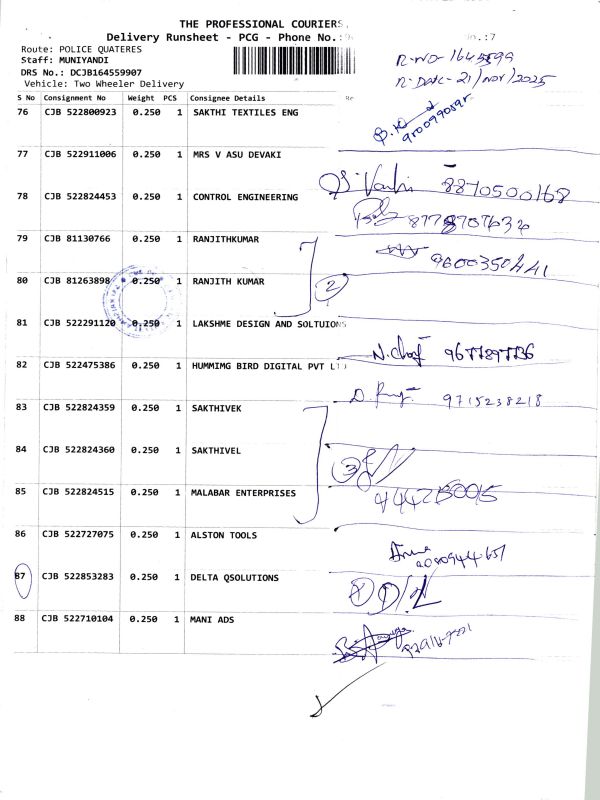 THE PROFESSIONAL COURIERS,
Delivery Runsheet - PCG - Phone No.:
Route: POLICE QUATERES
Staff: MUNIYANDI
DRS No.: DCJB164559907
Vehicle: Two Wheeler Delivery
R-DATE- 21/Nov/2025
S No Consignment No Weight PCS Consignee Details Re
76 CJB 522800923 0.250 1 SAKTHI TEXTILES ENG
77 CJB 522911006 0.250 1 MRS V ASU DEVAKI
8870500168
78 CJB 522824453 0.250 1 CONTROL ENGINEERING
8778707632
79 CJB 81130766 0.250 1 RANJITHKUMAR
9600350441
80 CJB 81263898 0.250 1 RANJITH KUMAR
2
81 CJB 522291120 0.250 1 LAKSHME DESIGN AND SOLTUIONS
82 CJB 522475386 0.250 1 HUMMIMG BIRD DIGITAL PVT LTD
9715238218
83 CJB 522824359 0.250 1 SAKTHIVEK
84 CJB 522824360 0.250 1 SAKTHIVEL
3
85 CJB 522824515 0.250 1 MALABAR ENTERPRISES
86 CJB 522727075 0.250 1 ALSTON TOOLS
87 CJB 522853283 0.250 1 DELTA QSOLUTIONS
D/L
88 CJB 522710104 0.250 1 MANI ADS